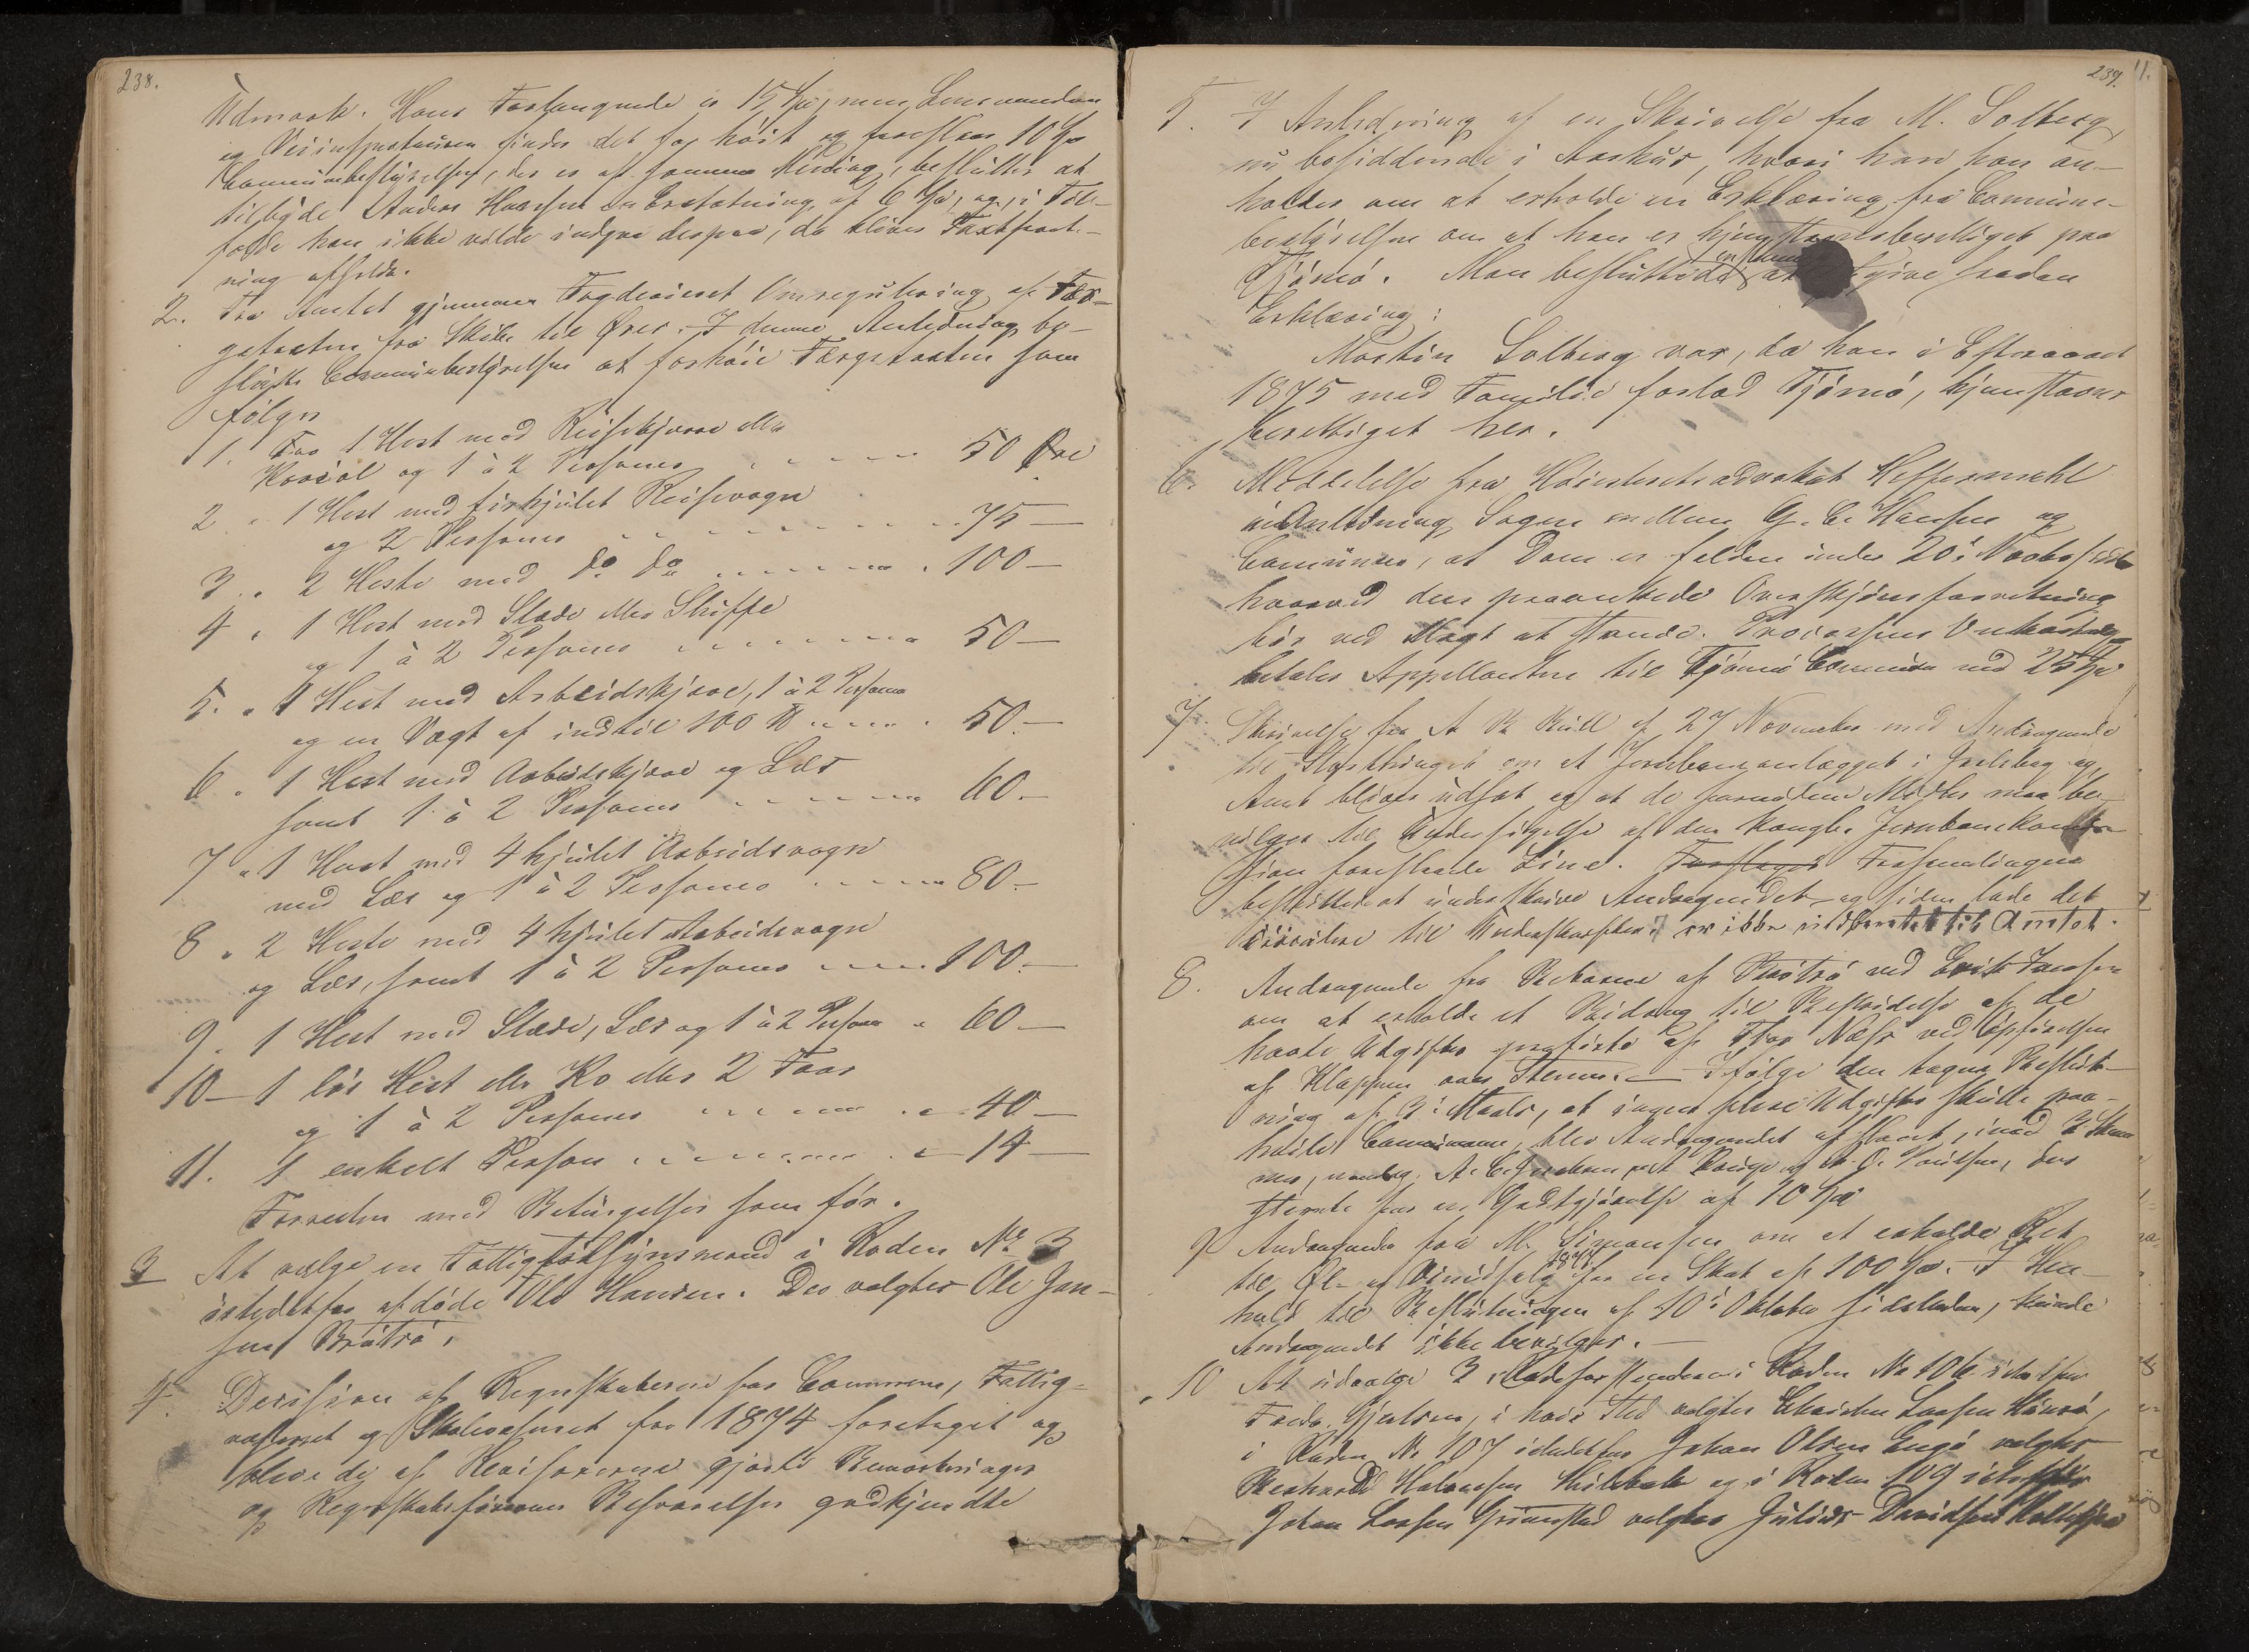 238.
Udmark. Hans Forlangende er 15 Spd, men Lensmanden
og Veiinspecteuren finder det for høit og foreslaar 10 Spd
Communebestyrelsen, der er af samme Mening, beslutter at
tilbyde Anders Hansen en Erstatning af 6 Spd, og, i Til-
fælde han ikke vilde indgaa derpaa, da bliver Taxtforret-
ning afholde.
2. Fra Amtet gjennem Fogderiet Omregulering af Fær-
getaxten fra Skillr til Ører. I denne Anledning be-
sluttr Communebestyrelsen at forhøie Færgetaxten som
følger
1. For 1 Hest med Reisekjærre eller
Karriol og 1 à 2 Personer 50 Øre
2 " 1 Hest med firhjulet Reisevogn
og 2 Personer 75 —
3 " 2 Heste med do do 100 —
4 " 1 Hest med Slæde eller Sluffe
og 1 à 2 Personer 50 —
5. " 1 Hest med Arbeidskjærre, 1 à 2 Personer
og en Vægt af indtil 100 ℔ 50 —
6 " 1 Hest med Arbeidskjærre og Læs
samt 1 à 2 Personer 60 —
7 " 1 Hest med 4 hjulet Arbeidsvogn
med Læs og 1 à 2 Personer 80 —
8 " 2 Heste med 4 hjulet Arbeidsvogn
og Læs, samt 1 à 2 Personer 100 —
9. 1 Hest med Slæde, Læs og 1 à 2 Personer " 60 —
10 — 1 løs Hest eller Ko eller 2 Faar
og 1 à 2 Personer 40 —
11. 1 enkelt Person 14 —
Forresten med Betingelser som før.
3 At vælge en Fattigtilsynsmand i Roden No 3
istedetfor afdøde Ole Hansen. Der valgtes Ole Jan-
sen Bråtrø.
4. Decision af Regnskaberne for Communen, Fattig-
væsenet og Skolevæsenet for 1874 foretaget og
blev de af Revisorerne gjorte Bemærkninger
og Regnskabsførernes Besvarelser godkjendte
239. 11.
5. I Anledning af en Skrivelse fra M. Solberg
nu bosiddende i Aarhus, hvori han an-
holder om at erholde en Erklæring fra Commune-
bestyrelsen om at han er hjemstavnsberettiget paa
Tjømø. Man besluttede at give saadan
Erklæring:
Martin Solberg var, da han i Efteraaret
1875 med Familie forlod Tjømø, hjemstavns
berettiget her.
6. Meddelelse fra Høiesteretsadvokat Heffermehl
i Anledning Sagen mellem G. C. Hansen og
Communen, at Dom er falden under 20de Novbr sidstl
hvorved den paaankede Overskjønsforretning
bør ved Magt at stande. Processens Omkostninger
betaler Appellanten til Tjømø Commune med 25 Spd
7. Skrivelse fra A B Bull af 27 November med Andragende
til Storthinget om at Jernbaneanlægget i Jarlsberg og
Amt bliver udsat og at de fornødne Midler maa be-
vilges til Undersøgelse af den kongle Jernbanekommis-
sion foreslaaede Linie. Forsamlingen
besluttede at underskrive Andragendet og siden lade det
cirkulere til Underskrifter. er ikke indsendt til Amtet.
8. Andragende fra Beboerne af Brøtsø ved Erik Jansen
om at erholde et Bidrag til Bestridelse af de
havte Udgifter
af Kloppen over Stenen. — Ifølge den tagne Beslut-
ning af 3de Marts, at ingen slige Udgifter skulle paa-
hvile Communen, blev Andragendet afslaaet, imod 3 Stem
mer, nemlig A. C. Jacobsen og O. Paulsen, der
stemte for en Godtgjørelse af 10 Spd
9 Andragende fra M. Simonsen om at erholde Ret
til Øl- og Vinudsalg for en Skat af 100 Spd. — I Hen-
hold til Beslutningen af 10de Oktober sidstleden, kunde
Andragendet ikke bevilges. —
10 At udvælge 3 Rodeforstandere i Roden No 106 istedetfor
Fredr. Hjertsen, i hvis Sted valgtes Christen Larsen Hauvø,
i Roden No 107 istedetfor Johan Olsen Engø valgtes
Reinhardt Halvorsen Holtebak og i Roden 109 istedetfor
Johan Larsen Grimestad valgtes Julius Davidsen